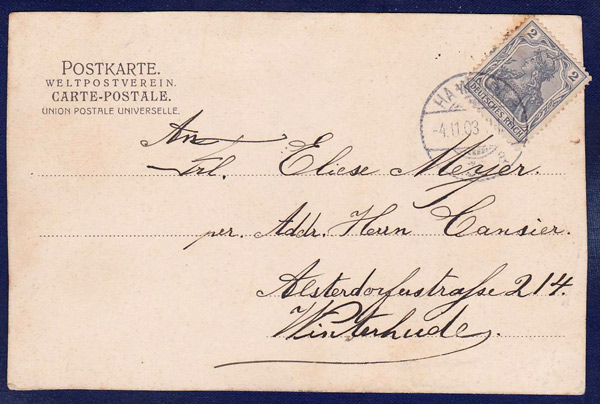 POSTKARTE.
WELTPOSTVEREIN.
CARTE-POSTALE.
UNION POSTALE UNIVERSELLE.
2 2
DEUTSCHES REICH
HA
-4.11.03
An
Frl. Eliese Meyer.
per. Addr. Herrn Cansier.
Alsterdorferstraße 214.
Winterhude.